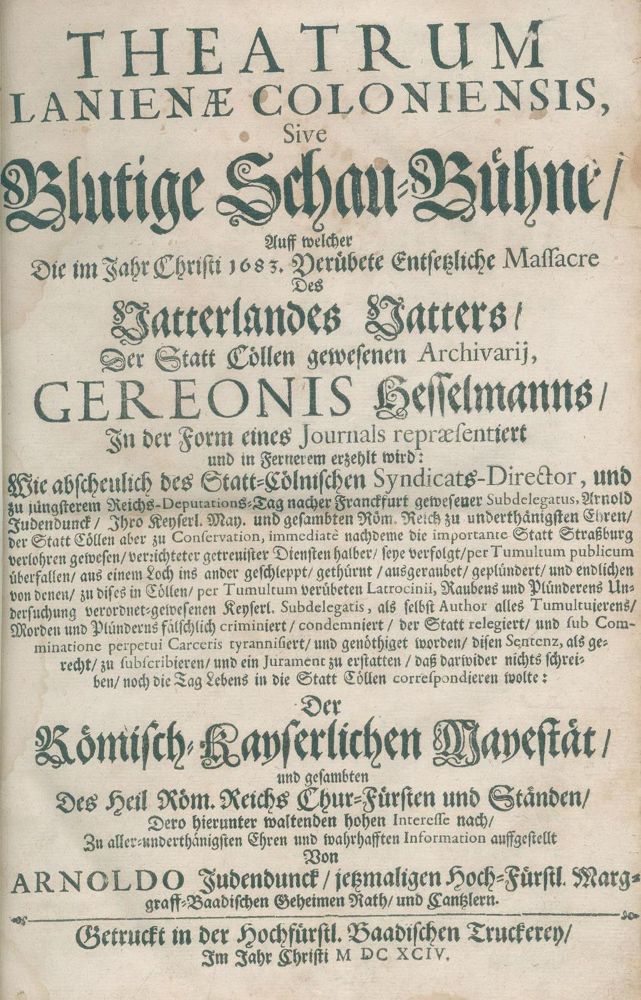 THEATRUM
LANIENÆ COLONIENSIS,
Sive
Blutige Schau-Bühne/
Auff welcher
Die im Jahr Christi 1683. Verübete Entsetzliche Massacre
Des
Vatterlandes Vatters/
Der Statt Cöllen gewesenen Archivarij,
GEREONIS Hesselmanns/
In der Form eines Journals repræsentiert
und in Fernerem erzehlt wird:
Wie abscheulich des Statt-Cölnischen Syndicats-Director, und
zu jüngsterem Reichs-Deputations-Tag nacher Franckfurt gewesener Subdelegatus, Arnold
Judendunck/ Ihro Keyserl. May. und gesambten Röm. Reich zu underthänigsten Ehren/
der Statt Cöllen aber zu Conservation, immediatè nachdeme die importante Statt Straßburg
verlohren gewesen/ verrichteter getreuister Diensten halber/ seye verfolgt/ per Tumultum publicum
überfallen/ aus einem Loch ins ander geschleppt/ gethürnt/ ausgeraubet/ geplündert/ und endlichen
von denen/ zu dises in Cöllen/ per Tumultum verübeten Latrocinii, Raubens und Plünderens Un-
dersuchung verordnet-gewesenen Keyserl. Subdelegatis, als selbst Author alles Tumultuierens/
Morden und Plünderns fälschlich criminiert/ condemniert/ der Statt relegiert/ und sub Com-
minatione perpetui Carceris tyrannisiert/ und genöthiget worden/ disen Sentenz, als ge-
recht/ zu subscribieren/ und ein Jurament zu erstatten/ daß darwider nichts schrei-
ben/ noch die Tag Lebens in die Statt Cöllen correspondieren wolte:
Der
Römisch-Kayserlichen Mayestät/
und gesambten
Des Heil Röm. Reichs Chur-Fürsten und Ständen/
Dero hierunter waltenden hohen Interesse nach/
Zu aller-underthänigsten Ehren und wahrhafften Information auffgestellt
Von
ARNOLDO Judendunck/ jetzmaligen Hoch-Fürstl. Marg-
graff-Baadischen Geheimen Rath/ und Cantzlern.
Getruckt in der Hochfürstl. Baadischen Truckerey/
Im Jahr Christi M DC XCIV.